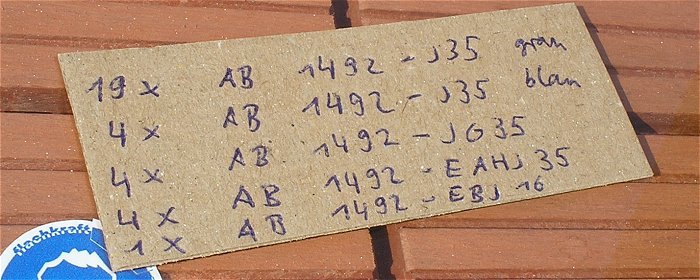 19 x AB 1492 - J35 grau
4 x AB 1492 - J35 blau
4 x AB 1492 - JG35
4 x AB 1492 - EAHJ35
1 x AB 1492 - EBJ 16
flachkraft